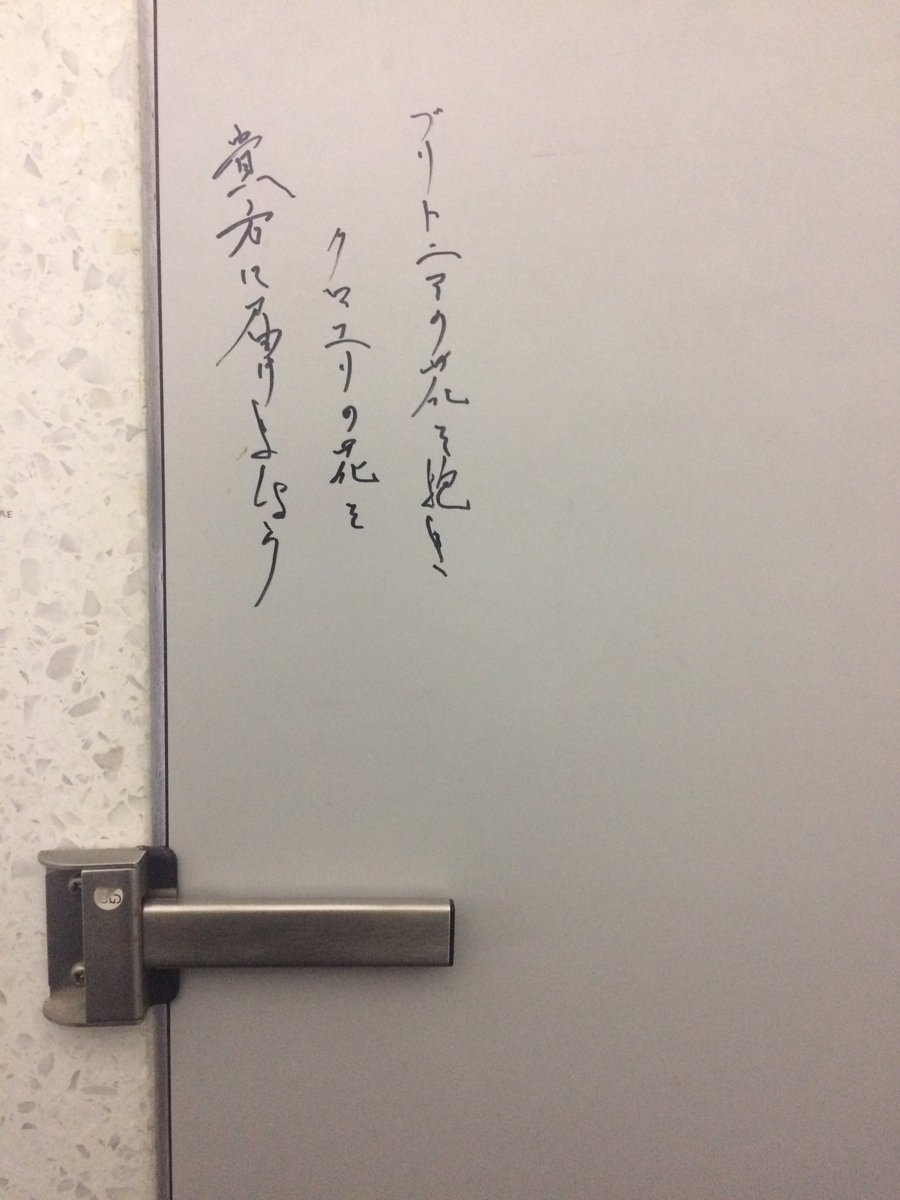 ブリトニアの花を抱き
クロユリの花を
貴方に届けましょう
RE